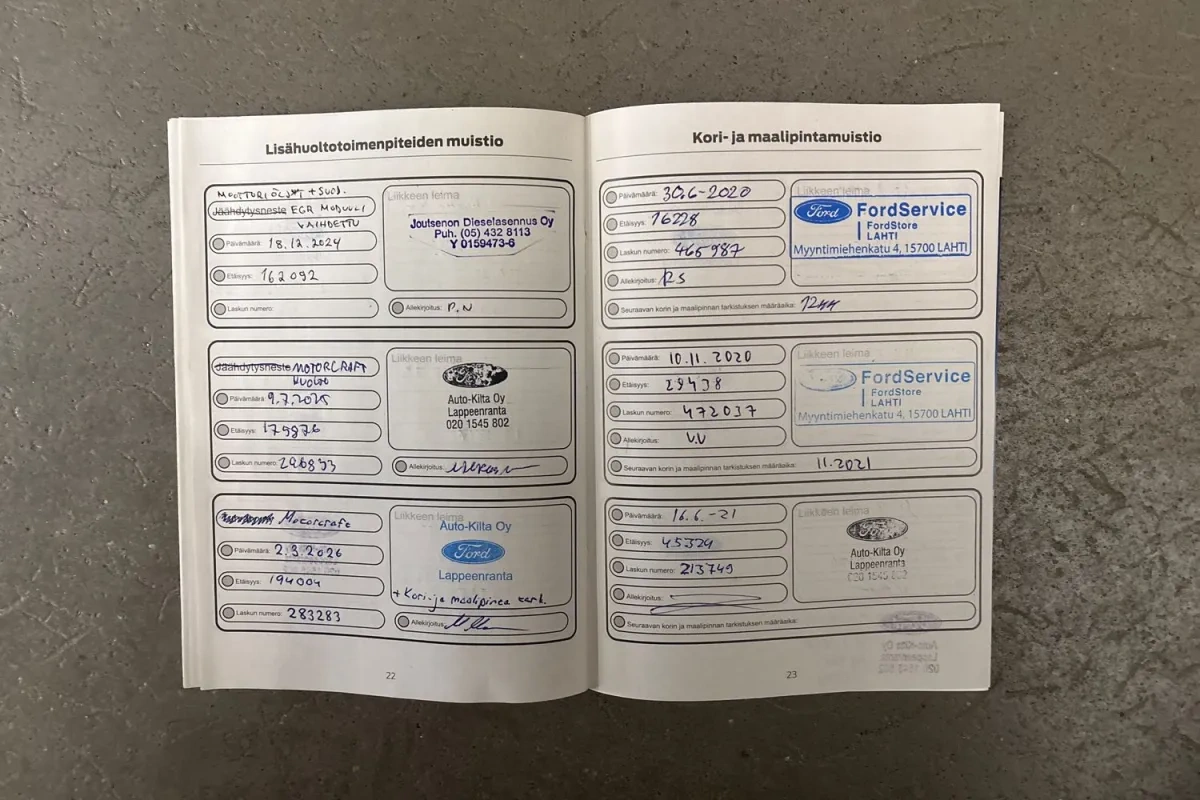 Lisähuoltotoimenpiteiden muistio
MOOTTORIÖLJYT + SUOD.
Jäähdytysneste EGR MODUULI
VAIHDETTU
Päivämäärä: 18.12.2024
Etäisyys: 162092
Laskun numero:
Liikkeen leima
Joutsenon Dieselasennus Oy
Puh. (05) 432 8113
Y 0159473-6
Allekirjoitus: P.N
Jäähdytysneste MOTORCRAFT
HUOLTO
Päivämäärä: 9.7.2025
Etäisyys: 179876
Laskun numero: 296833
Liikkeen leima
Ford
Auto-Kilta Oy
Lappeenranta
020 1545 802
Allekirjoitus:
Motorcraft
Päivämäärä: 2.3.2026
Etäisyys: 194004
Laskun numero: 283283
Liikkeen leima
Auto-Kilta Oy
Ford
Lappeenranta
+ Kori- ja maalipinna tark.
Allekirjoitus:
22
Kori- ja maalipintamuistio
Päivämäärä: 30.6-2020
Etäisyys: 16228
Laskun numero: 465987
Allekirjoitus: RS
Liikkeen leima
Ford FordService
FordStore
LAHTI
Myyntimiehenkatu 4, 15700 LAHTI
Seuraavan korin ja maalipinnan tarkistuksen määräaika: 12kk
Päivämäärä: 10.11.2020
Etäisyys: 29438
Laskun numero: 472037
Allekirjoitus: V.V
Liikkeen leima
FordService
FordStore
LAHTI
Myyntimiehenkatu 4, 15700 LAHTI
Seuraavan korin ja maalipinnan tarkistuksen määräaika: 11.2021
Päivämäärä: 16.6.-21
Etäisyys: 45324
Laskun numero: 213749
Allekirjoitus:
Liikkeen leima
Ford
Auto-Kilta Oy
Lappeenranta
020 1545 802
Seuraavan korin ja maalipinnan tarkistuksen määräaika:
23